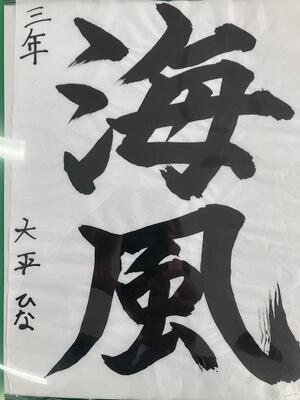 海風
三年
大平ひな